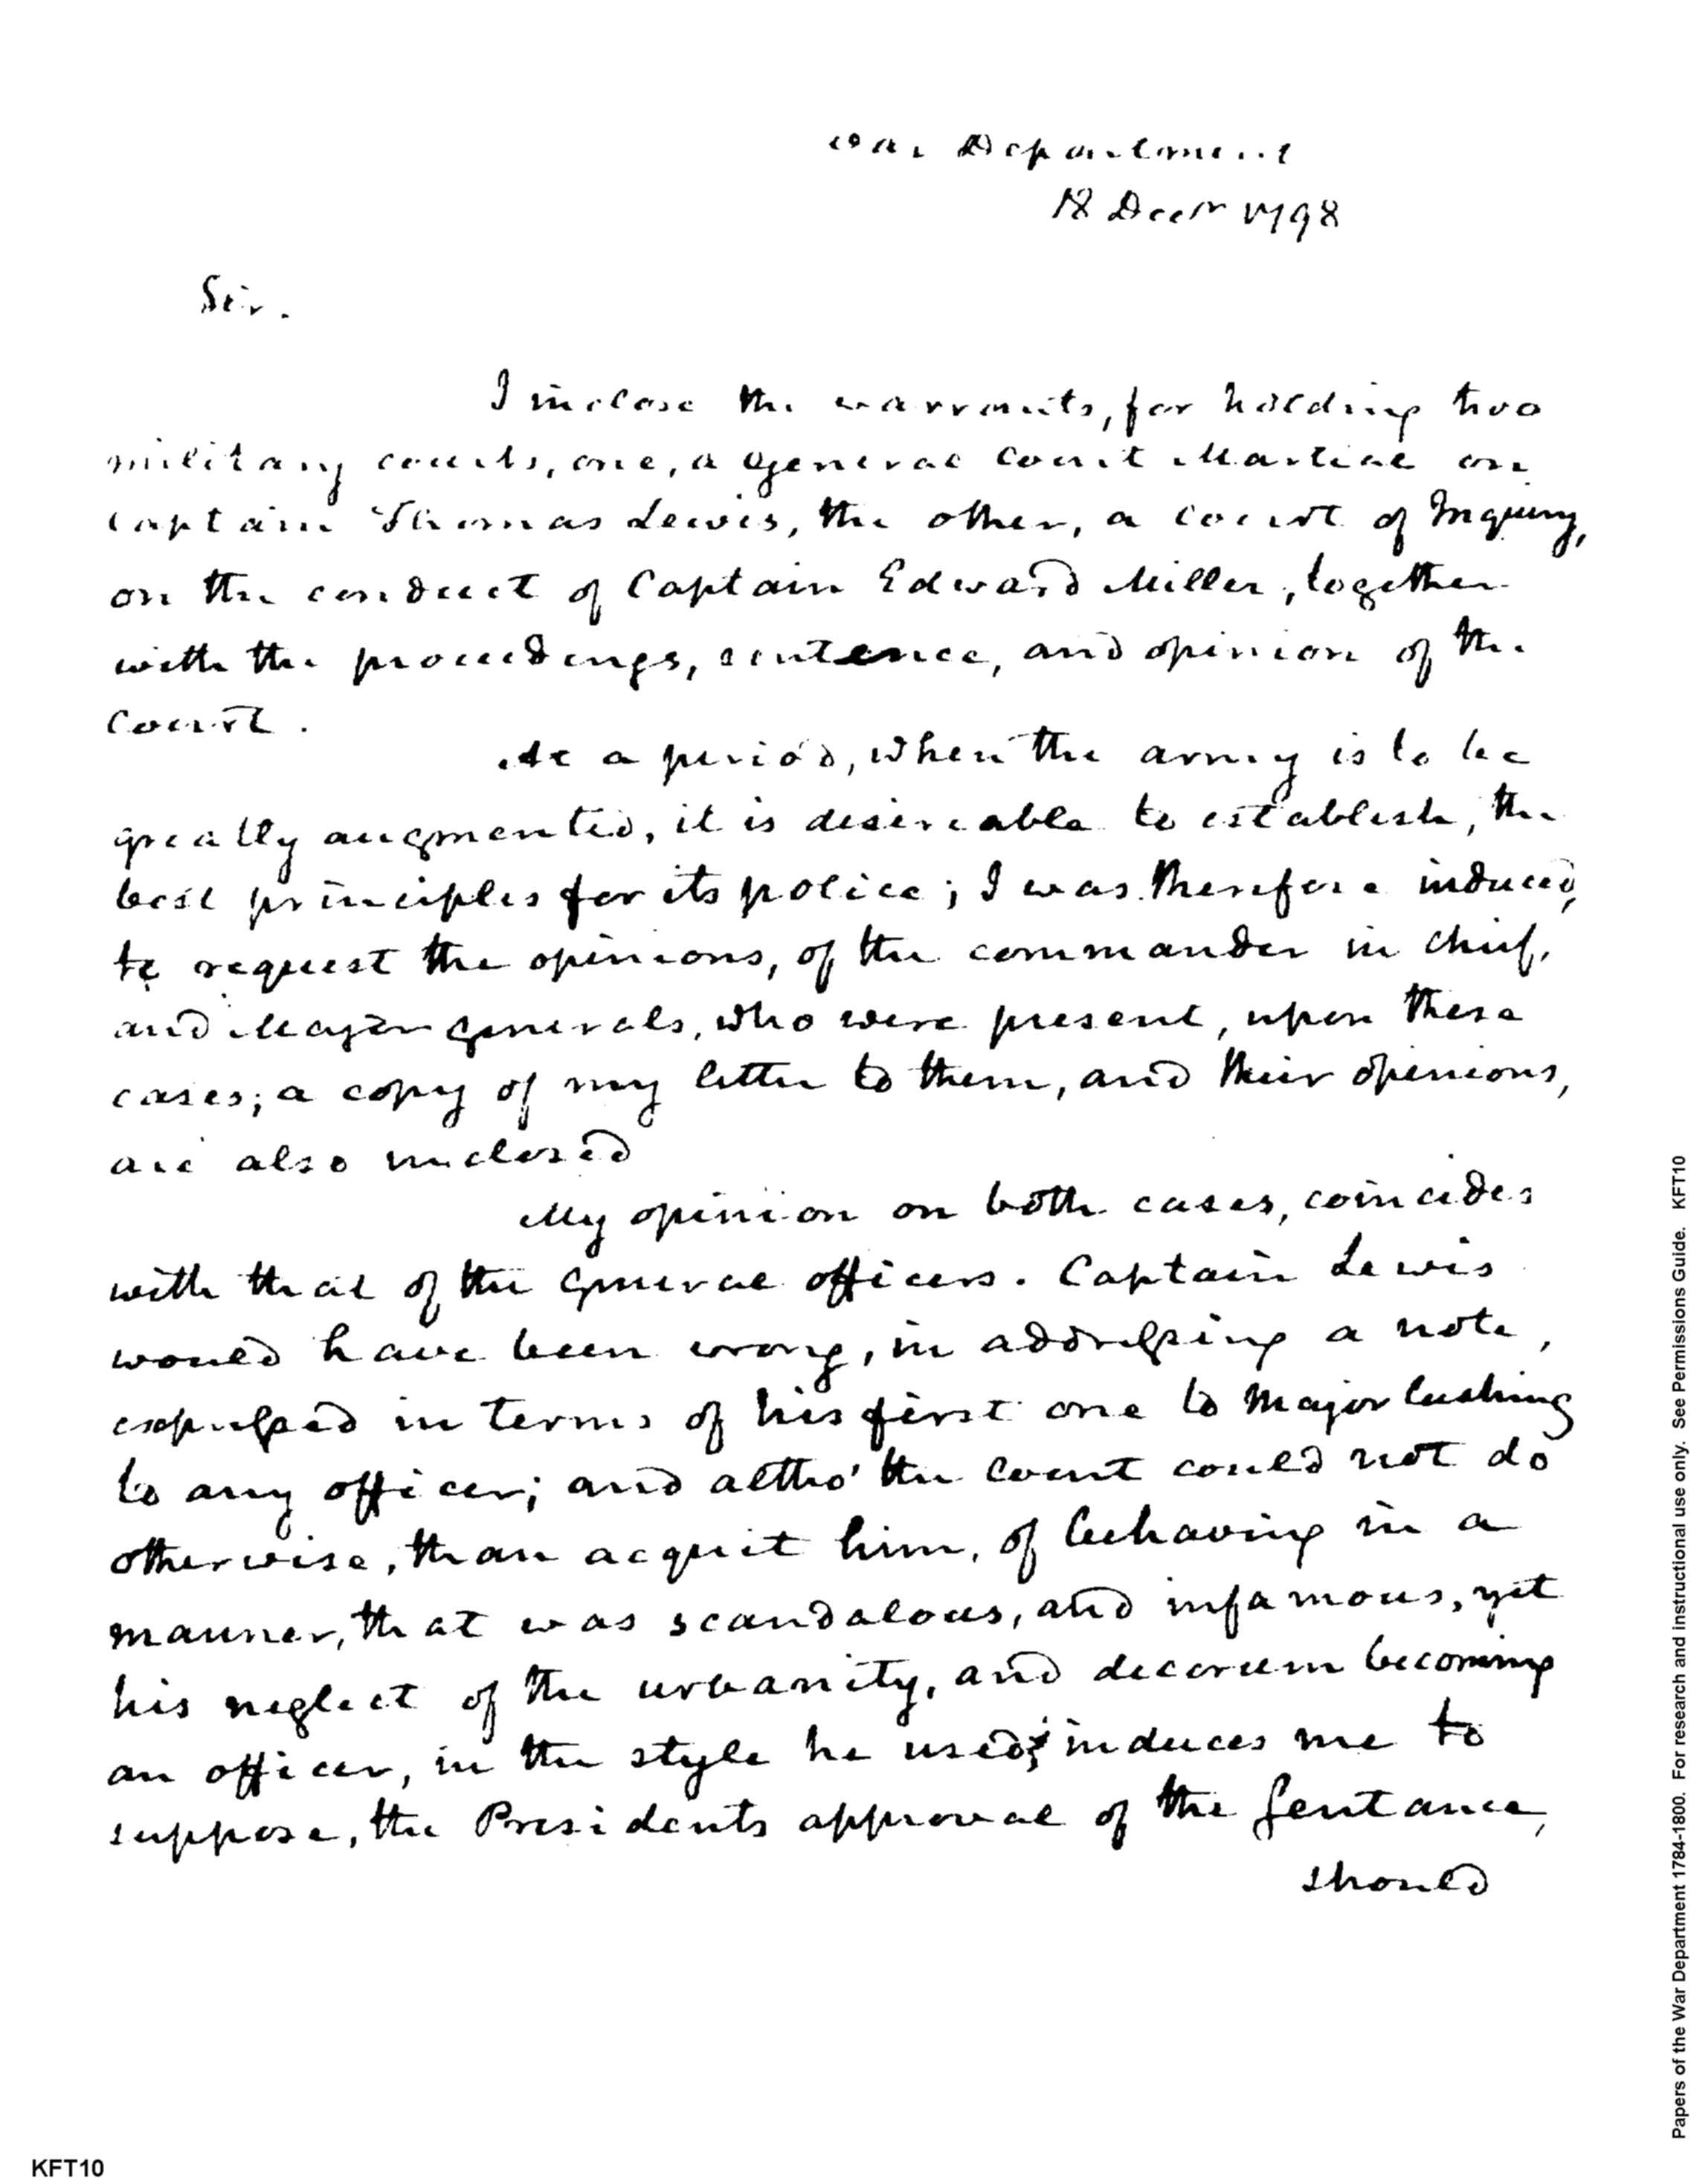 War Department
18 Decr 1798
Sir.
I inclose the warrants, for holding two
military courts, one, a General Court Martial on
Captain Thomas Lewis, the other, a court of Inquiry,
on the conduct of Captain Edward Miller, together
with the proceedings, sentence, and opinion of the
Court.
At a period, when the army is to be
greatly augmented, it is desireable to establish, the
best principles for its police; I was therefore induced,
to request the opinions, of the commander in chief,
and Major Generals, who were present, upon these
cases; a copy of my letter to them, and their opinions,
are also inclosed
My opinion on both cases, coincides
with that of the General officers. Captain Lewis
would have been wrong, in addressing a note,
expressed in terms of his first one to Major Cushing
to any officer; and altho' the Court could not do
otherwise, than acquit him, of behaving in a
manner, that was scandalous, and infamous, yet
his neglect of the urbanity, and decorum becoming
an officer, in the style he used, induces me to
suppose, the Presidents approval of the Sentance,
should
KFT10
Papers of the War Department 1784-1800. For research and instructional use only. See Permissions Guide. KFT10